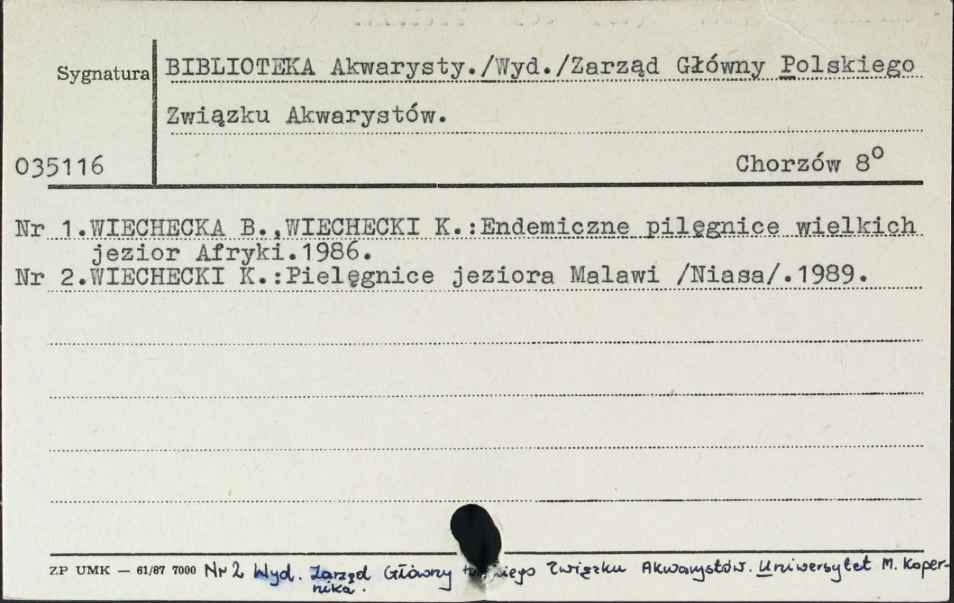 Sygnatura BIBLIOTEKA Akwarysty./Wyd./Zarząd Główny Polskiego
Związku Akwarystów.
035116 Chorzów 8⁰
Nr 1.WIECHECKA B.,WIECHECKI K.:Endemiczne pilęgnice wielkich
jezior Afryki.1986.
Nr 2.WIECHECKI K.:Pielęgnice jeziora Malawi /Niasa/.1989.
ZP UMK — 61/87 7000 Nr 2 Wyd. Zarząd Główny Związku Akwarystów. Uniwersytet M. Koper-
nika.